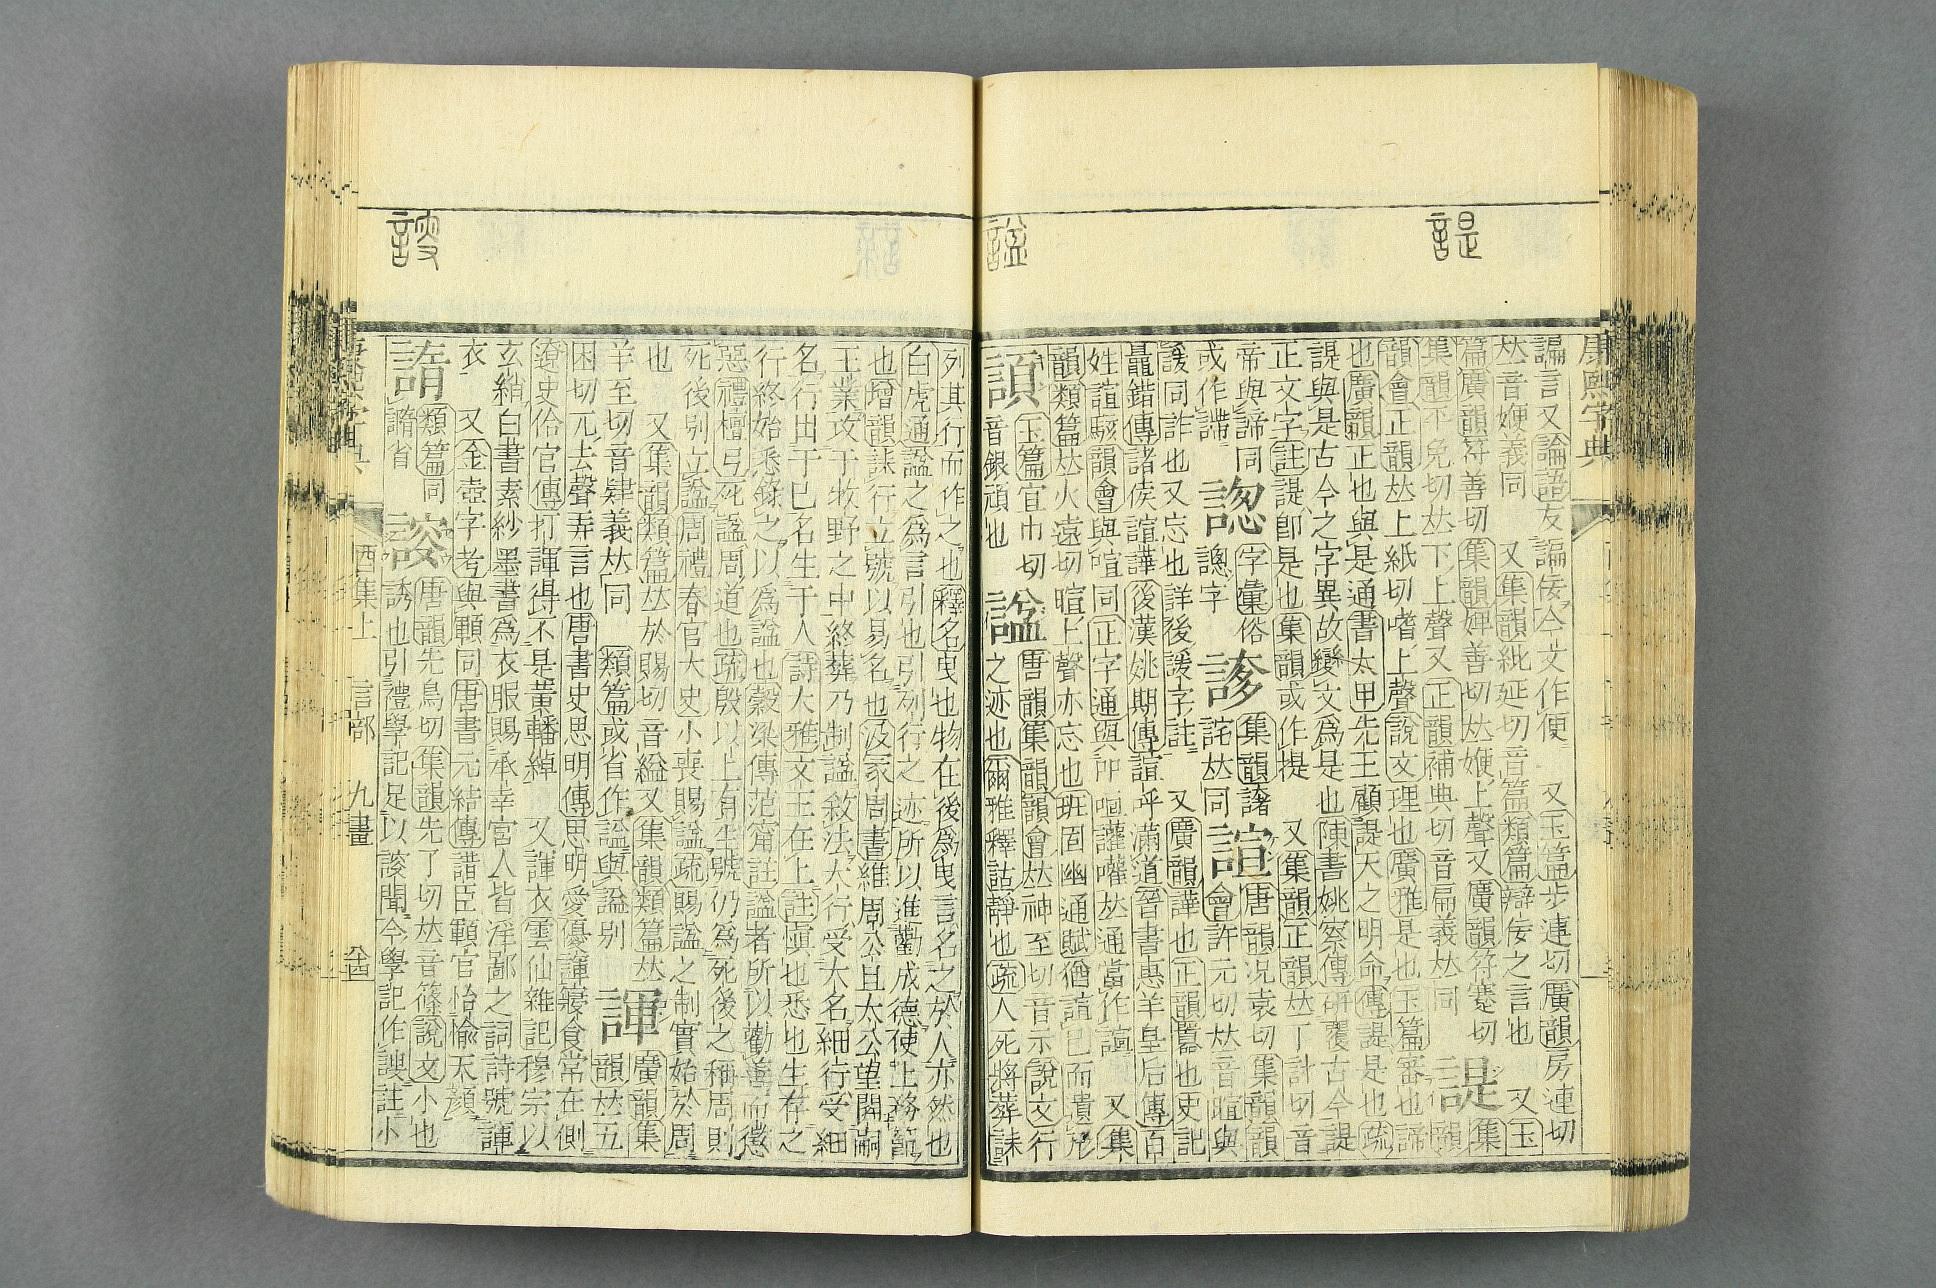 諟
諡
謏
康熙字典
諞言又論語友諞佞今文作便 又玉篇步連切廣韻房連切
𠀤音楩義同 又集韻紕延切音篇類篇辯佞之言也 又玉
篇廣韻符善切集韻婢善切𠀤楩上聲又廣韻符蹇切
集韻平免切𠀤下上聲又正韻補典切音扁義𠀤同
諟 集
韻
韻會正韻𠀤上紙切嗜上聲說文理也廣雅是也玉篇審也諦
也廣韻正也與是通書太甲先王顧諟天之明命傳諟是也疏
諟與是古今之字異故變文爲是也陳書姚察傳研覈古今諟
正文字註諟卽是也集韻或作提 又集韻正韻𠀤丁計切音
帝與諦同
或作諦
字彙俗
字
集韻譇
詫𠀤同
諠 唐韻況袁切集韻韻
會許元切𠀤音暄與
諼同詐也又忘也詳後諼字註 又廣韻譁也正韻嚻也史記
鼂錯傳諸侯諠譁後漢姚期傳諠呼滿道晉書惠羊皇后傳百
姓諠駭韻會與喧同正字通與吅喧讙嚾𠀤通當作諠 又集
韻類篇𠀤火遠切暄上聲亦忘也班固幽通賦猶諠己而遺形
玉篇宜巾切
音銀頑也
諡 唐韻集韻韻會𠀤神至切音示說文行
之迹也爾雅釋詁靜也疏人死將葬誄
列其行而作之也釋名曳也物在後爲曳言名之於人亦然也
白虎通諡之爲言引也引列行之迹所以進勸成德使上務節
也增韻誄行立號以易名也汲冢周書維周公旦太公望開嗣
王業攻于牧野之中終葬乃制諡敘法大行受大名細行受細
名行出于己名生于人詩大雅文王在上註愼也悉也生存之
行終始悉錄之以爲諡也穀梁傳范甯註諡者所以勸善而懲
惡禮檀弓死諡周道也疏殷以上有生號仍爲死後之稱周則
死後別立諡周禮春官大史小喪賜諡疏賜諡之制實始於周
也 又集韻類篇𠀤於賜切音縊又集韻類篇𠀤
羊至切音肄義𠀤同 類篇或省作諡與謚別
諢 廣韻集
韻𠀤五
困切元去聲弄言也唐書史思明傳思明愛優諢寢食常在側
遼史伶官傳打諢得不是黃幡綽 又諢衣雲仙雜記穆宗以
玄綃白書素紗墨書爲衣服賜承幸宮人皆淫鄙之詞詩號諢
衣 又金壺字考與顐同唐書元結傳諧臣顐官怡愉天顏
類篇同
省
謏 唐韻先鳥切集韻先了切𠀤音篠說文小也
誘也引禮學記足以謏聞今學記作謏註小
康熙字典 酉集上 言部 九畫